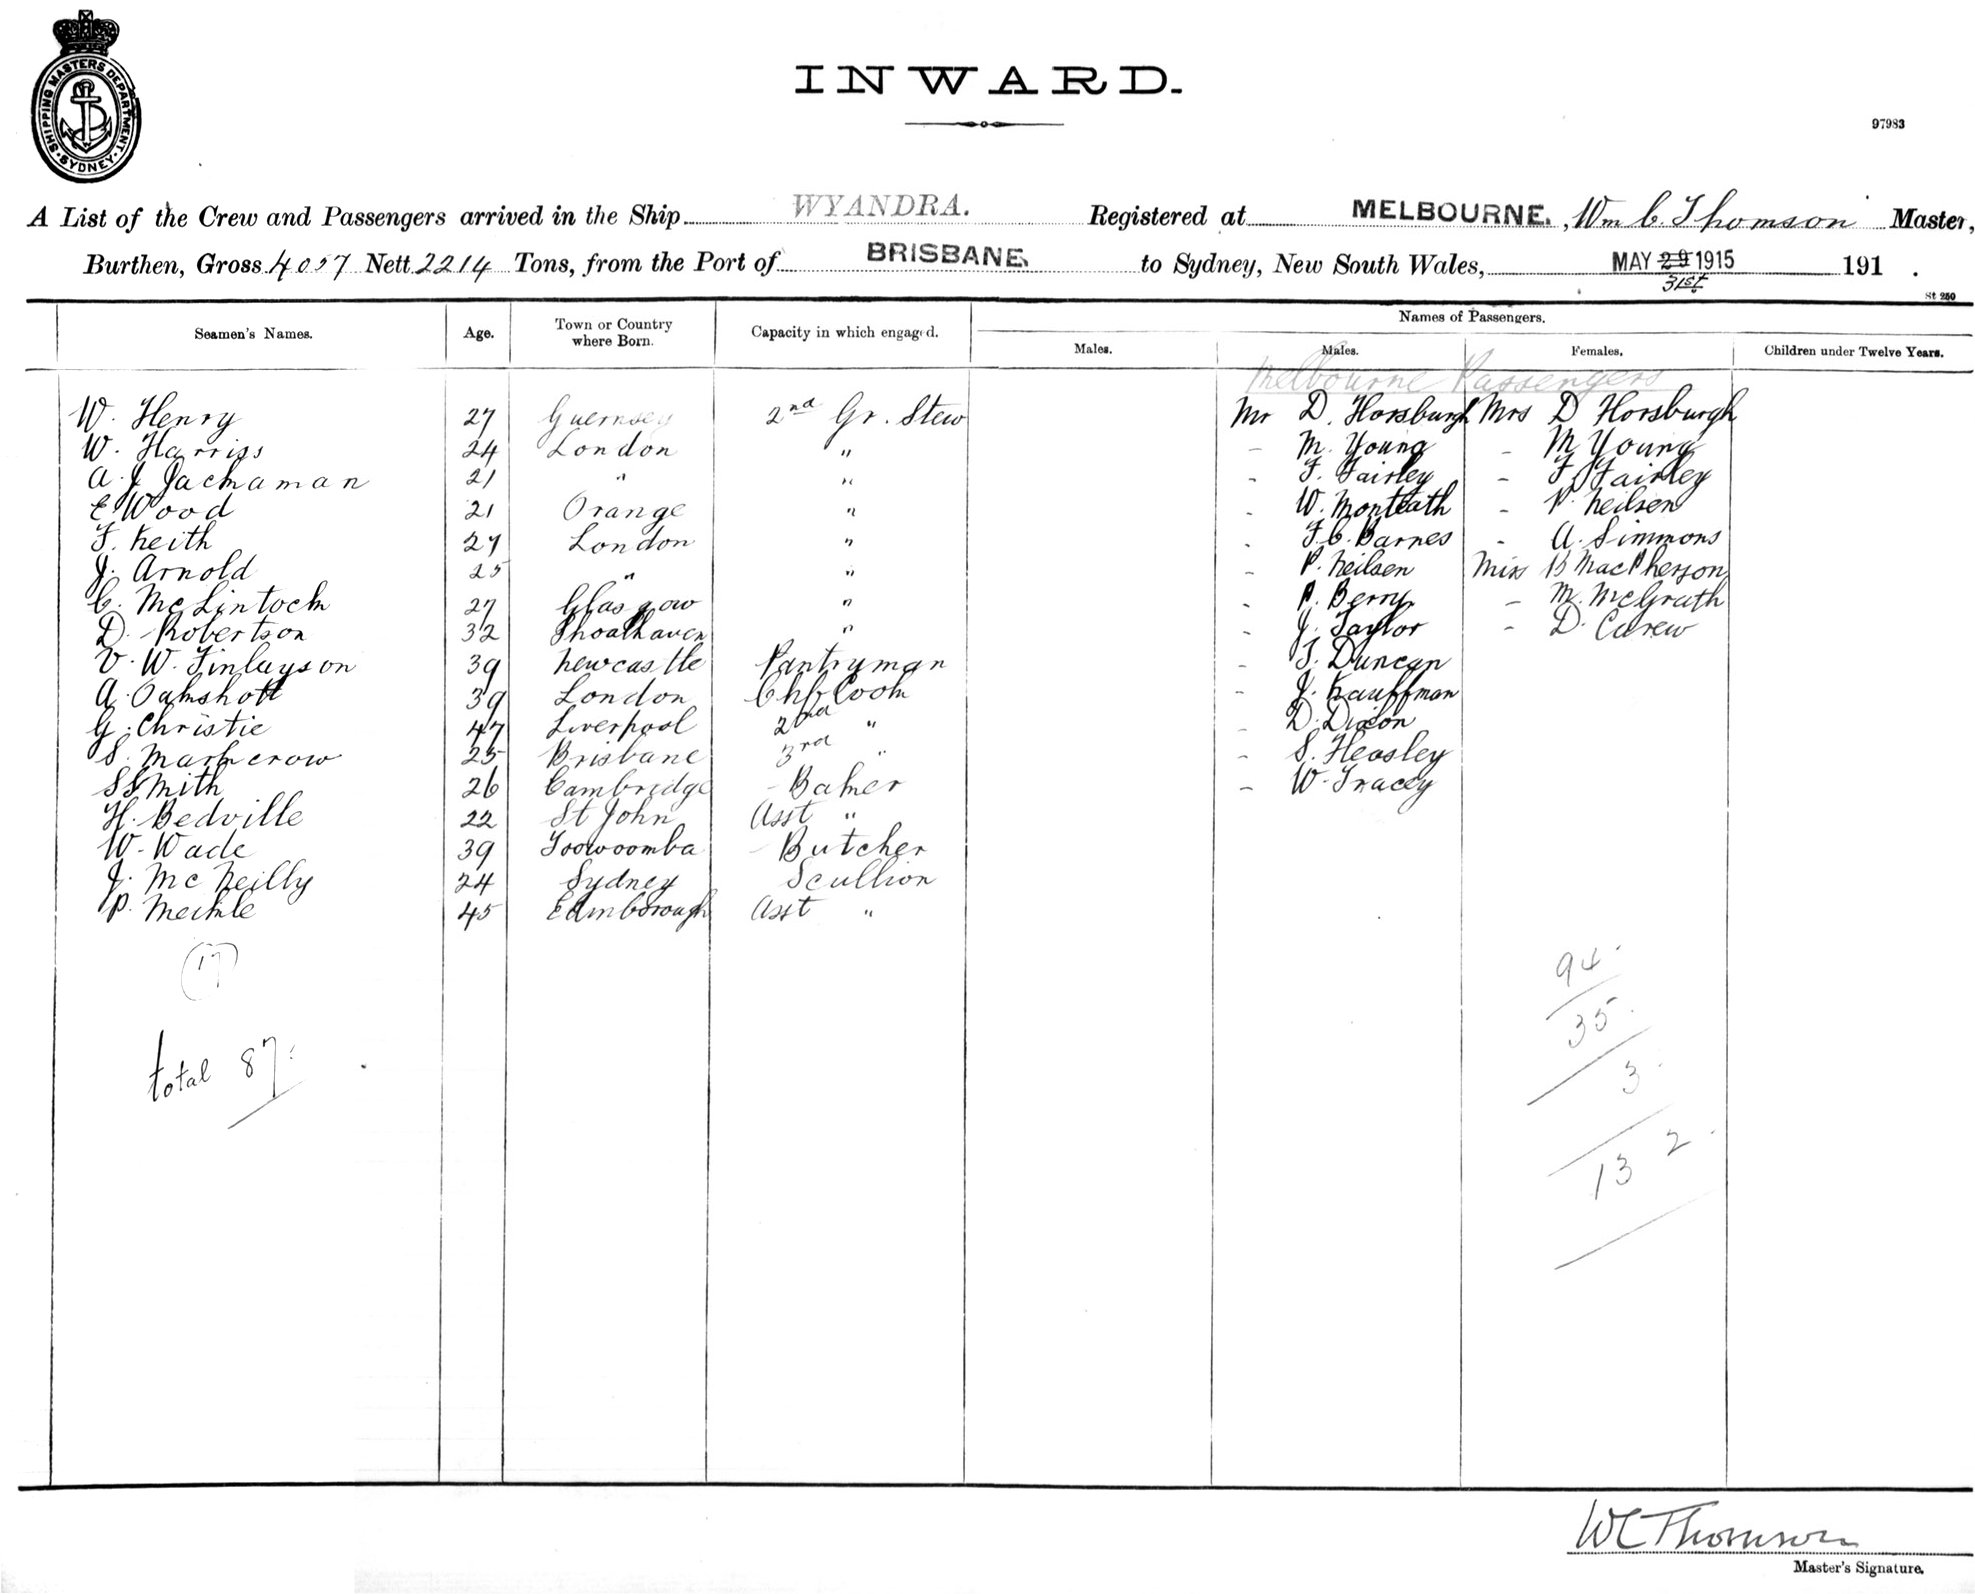 SHIPPING MASTERS DEPARTMENT
SYDNEY
INWARD.
97983
A List of the Crew and Passengers arrived in the Ship WYANDRA. Registered at MELBOURNE. , Wm C. Thomson Master,
Burthen, Gross 4057 Nett 2214 Tons, from the Port of BRISBANE. to Sydney, New South Wales, MAY 29 1915 191 .
31st
St 250
Seamen's Names. Age. Town or Country where Born. Capacity in which engaged. Names of Passengers.
Males. Males. Females. Children under Twelve Years.
Melbourne Passengers
W. Henry 27 Guernsey 2nd Gr. Stew Mr D. Horsburgh Mrs D Horsburgh
W. Harriss 24 London " - M. Young - M Young
A. J Jachaman 21 " " - F. Fairley - F Fairley
E Wood 21 Orange " - W. Monteath - P. Neilsen
F. Keith 27 London " - F. C. Barnes - A. Simmons
J. Arnold 25 " " - P. Neilsen Miss B MacPherson
C. McLintock 27 Glasgow " - P. Berry - M. McGrath
D. Robertson 32 Shoalhaven " - J. Taylor - D. Carew
V. W. Finlayson 39 Newcastle Pantryman - T. Duncan
A. Oakshott 39 London Chf Cook - J. Kauffman
G. Christie 47 Liverpool 2nd " - D. Dixon
S. Markcrow 25 Brisbane 3rd " - S. Heasley
S Smith 26 Cambridge - Baker - W. Tracey
H. Bedville 22 St John Asst "
W. Wade 39 Toowoomba - Butcher
J. McNeilly 24 Sydney Scullion
P. Meikle 45 Edinborough Asst "
17
total 87
94
35
3
132
WC Thomson
Master's Signature.